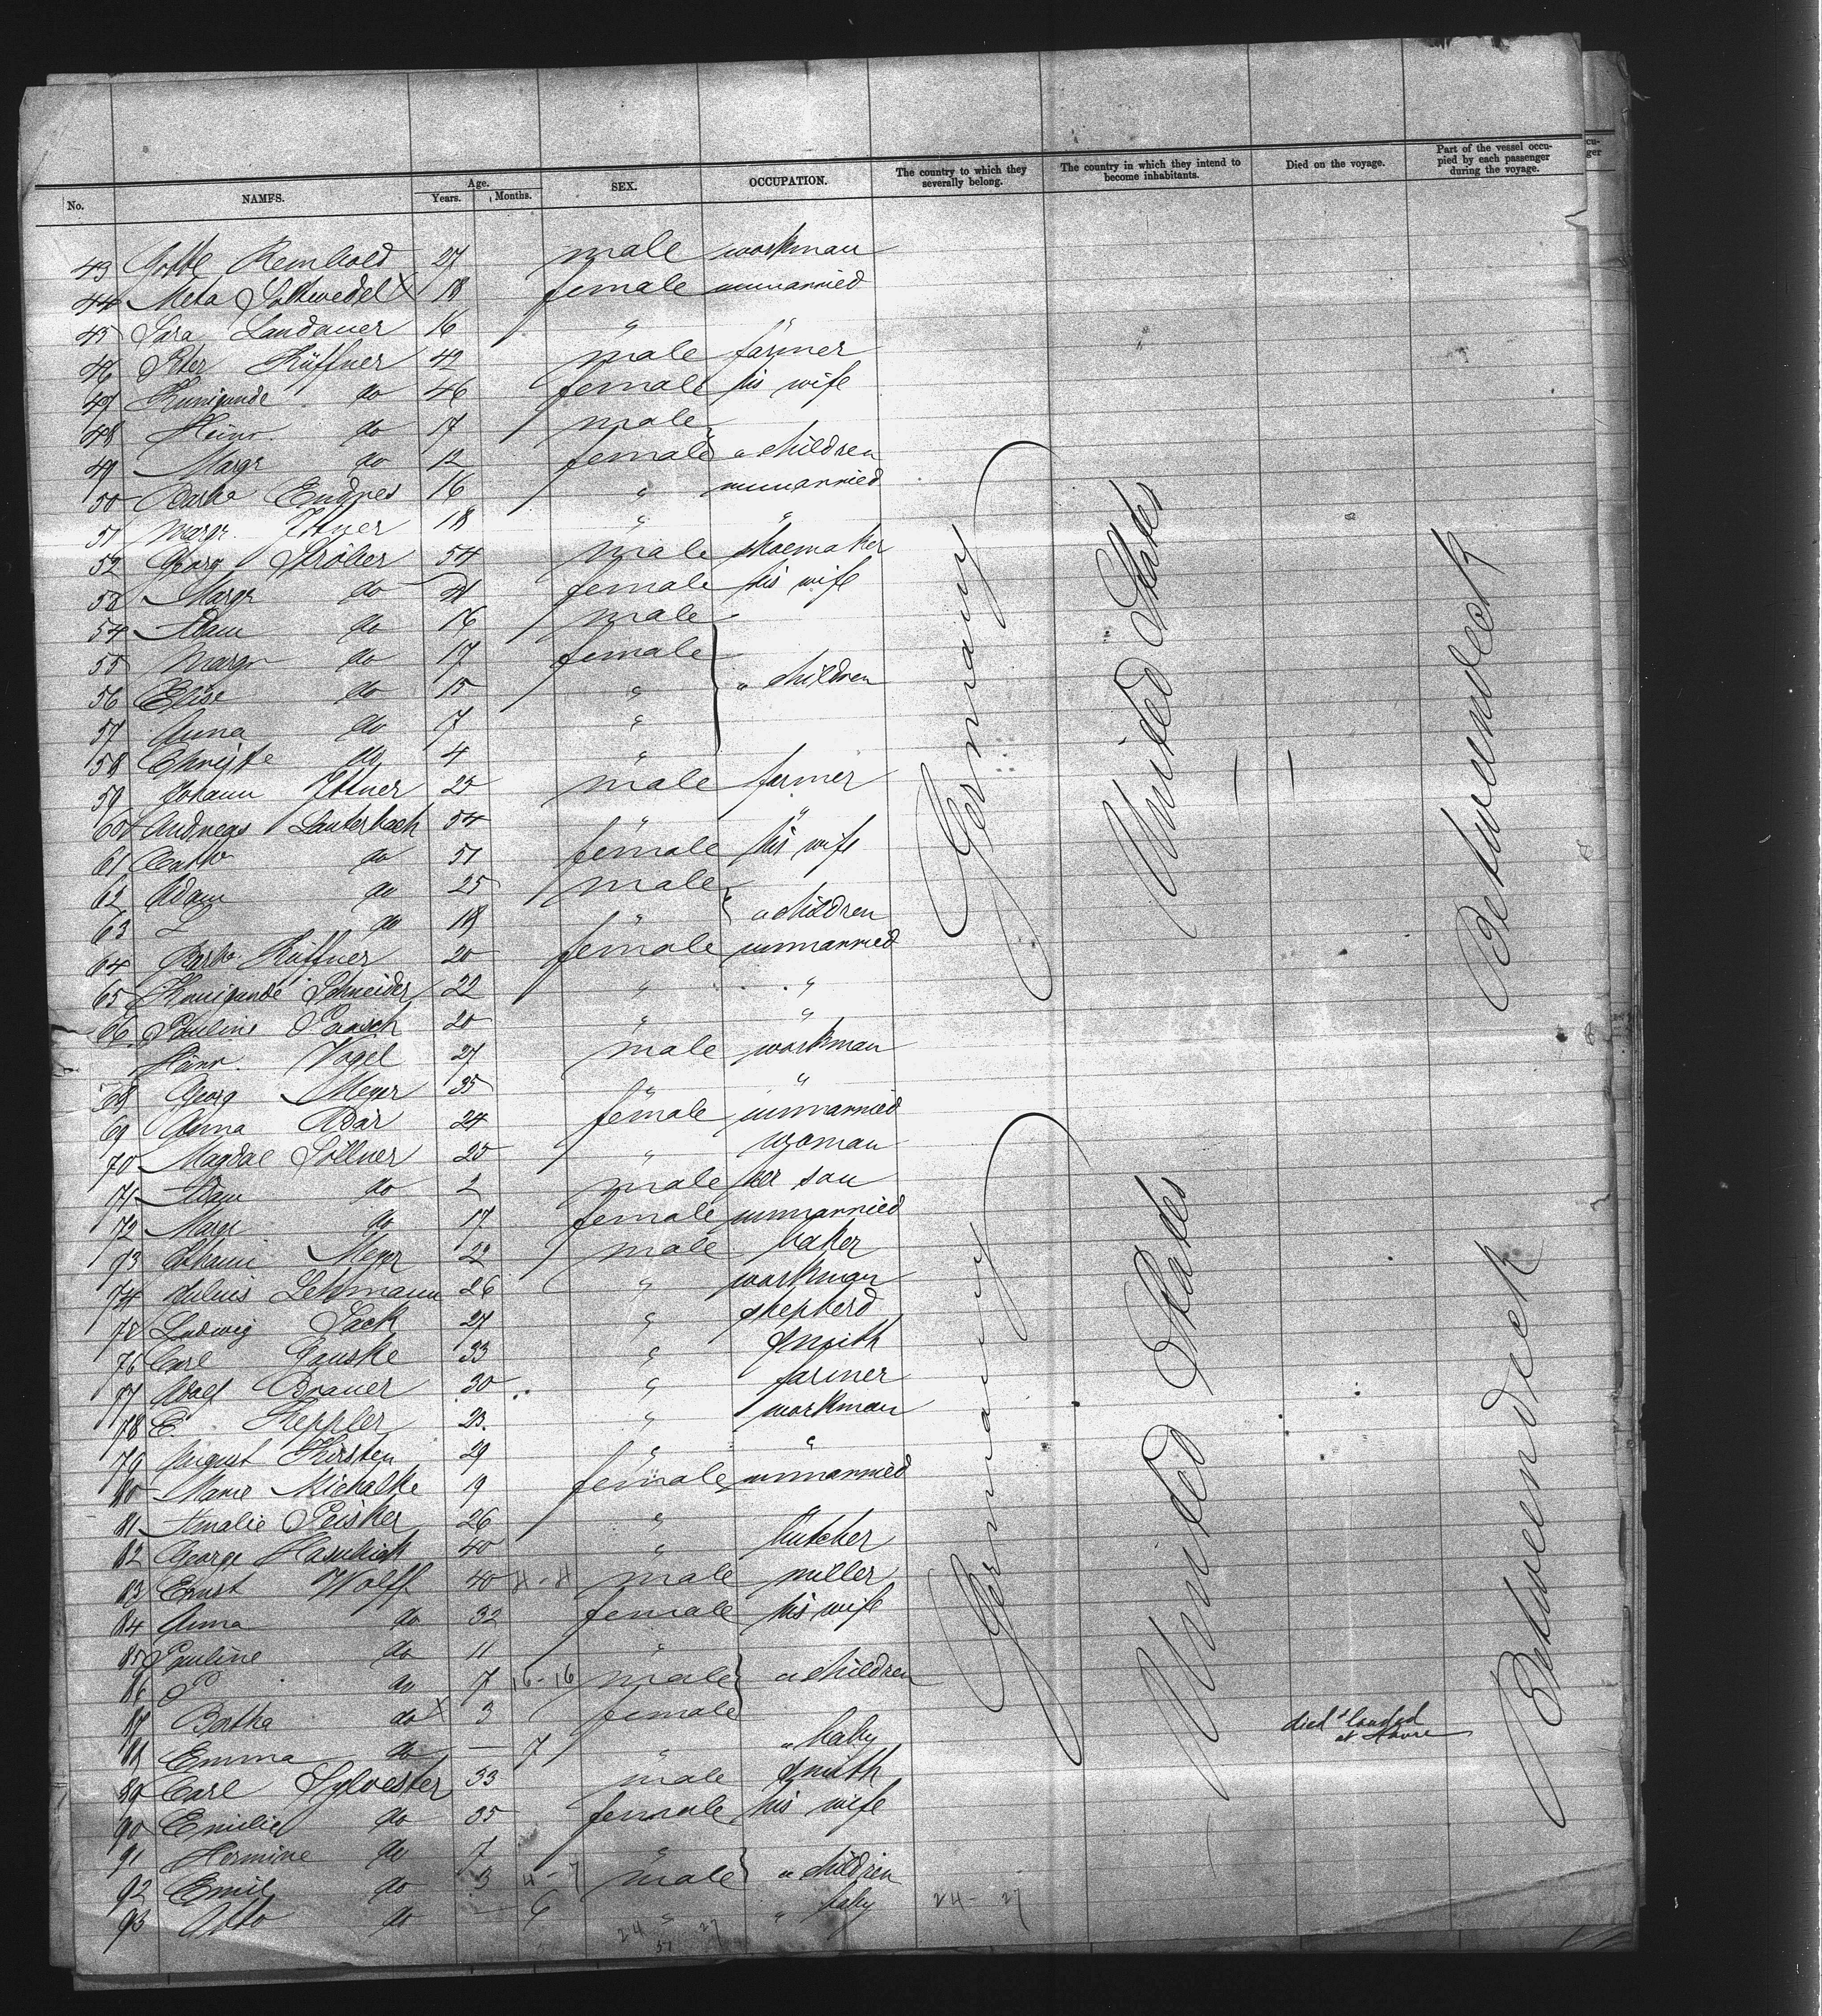 No. NAMES. Age. Years. Months. SEX. OCCUPATION. The country to which they severally belong. The country in which they intend to become inhabitants. Died on the voyage. Part of the vessel occupied by each passenger during the voyage.
43 Reinhold 27 male workman
44 Meta X 18 female unmarried
45 Sara Landauer 16 " "
46 Peter Küffner 42 male farmer
47 Kunigunde do 46 female his wife
48 Heinr. do 17 male
49 Margr do 12 female " children
50 Barba Endres 16 " unmarried
51 Margr. Ittner 18 " "
52 Georg Ströber 54 male shoemaker
53 Margr do 41 female his wife
54 Adam do 16 male
55 Margr do 17 female
56 Elise do 15 " " children
57 Anna do 7 "
58 Christe do 4 "
59 Johann Ittner 25 male farmer
60 Andreas Lauterbach 54 " "
61 do 51 female his wife
62 Adam do 25 male
63 do 18 " " children
64 Barb. Küffner 20 female unmarried
65 Kunigunde Schneider 22 " "
66 Pauline Paasch 20 " "
Heinr. Vogel 27 male workman
68 Georg Meyer 35 " "
69 Anna Bär 24 female unmarried
70 Magdal Söllner 25 " woman
71 Adam do 2 male her son
72 Margr do 17 female unmarried
73 Johann Meyer 22 male baker
74 Julius Lehmann 26 " workman
75 Ludwig Sack 27 " shepherd
76 Carl Ganske 33 " smith
77 Adolf Brauer 30 " farmer
78 E. Keppler 23 " workman
79 August Kirsten 29 " "
80 Marie Michalke 19 female unmarried
81 Amalie Peisker 26 " "
82 George 40 " butcher
83 Ernst Wolff 40 male miller
84 Anna do 32 female his wife
85 Pauline do 11 "
86 do 7 16-16 male " children
87 Bertha do X 3 female
88 Emma do — 7 " " baby died & landed at Havre
89 Carl Sylvester 33 male smith
90 Emilie do 35 female his wife
91 Hermine do 7 "
92 Emil do 3 4-7 male " children
93 Otto do — 6 " " baby
24 27
51
24-27
Germany
United States
Betweendeck
Germany
United States
Betweendeck